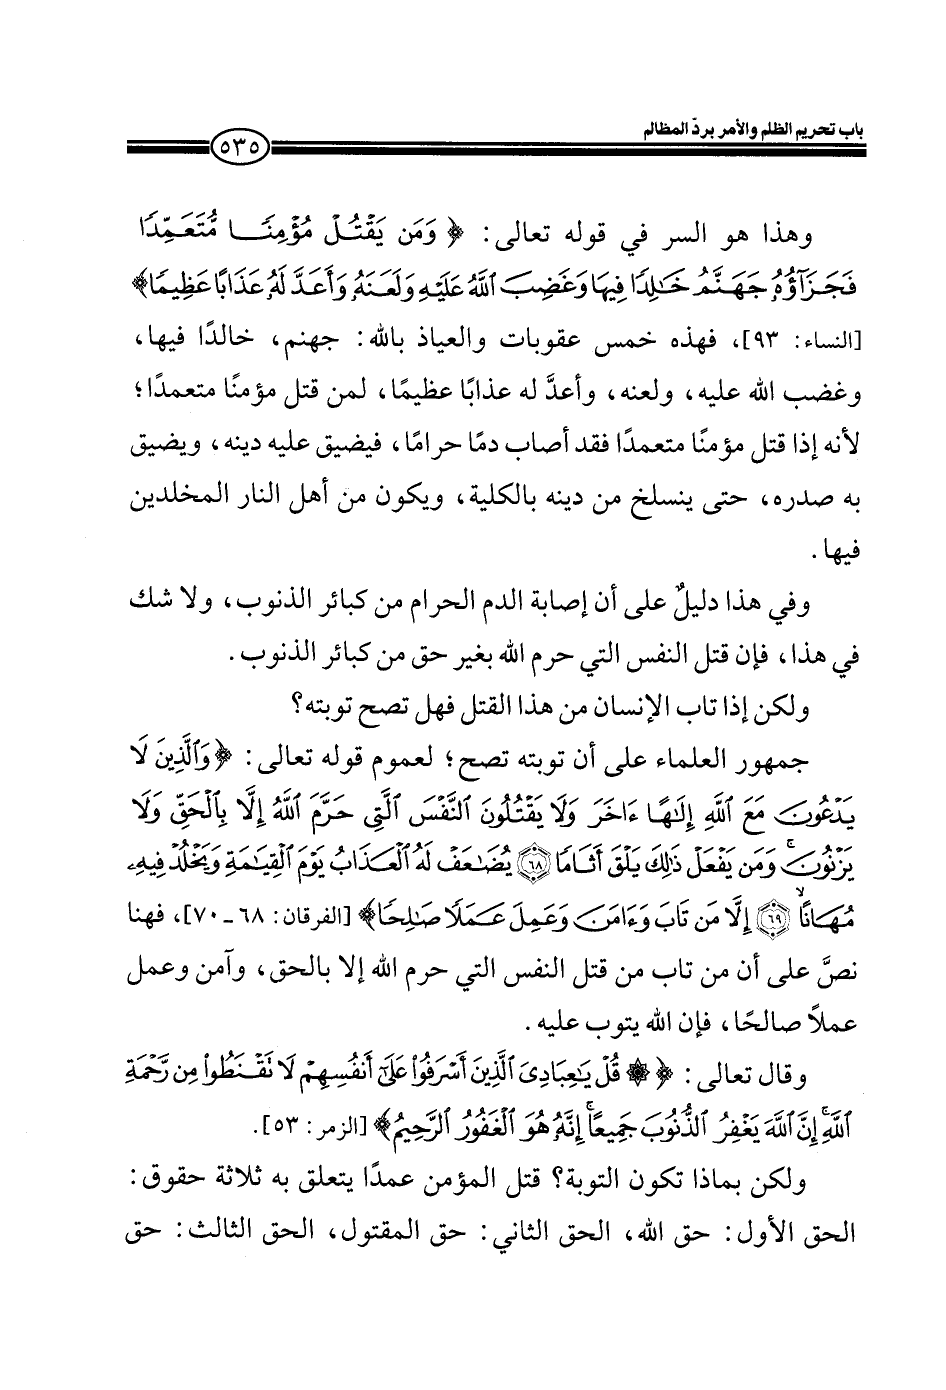 باب تحريم الظلم والأمر بردّ المظالم
٥٣٥
وهذا هو السر في قوله تعالى: ﴿ وَمَن يَقْتُلْ مُؤْمِنًا مُّتَعَمِّدًا
فَجَزَآؤُهُۥ جَهَنَّمُ خَٰلِدًا فِيهَا وَغَضِبَ ٱللَّهُ عَلَيْهِ وَلَعَنَهُۥ وَأَعَدَّ لَهُۥ عَذَابًا عَظِيمًا﴾
[النساء: ٩٣]، فهذه خمس عقوبات والعياذ بالله: جهنم، خالدًا فيها،
وغضب الله عليه، ولعنه، وأعدَّ له عذابًا عظيمًا، لمن قتل مؤمنًا متعمدًا؛
لأنه إذا قتل مؤمنًا متعمدًا فقد أصاب دمًا حرامًا، فيضيق عليه دينه، ويضيق
به صدره، حتى ينسلخ من دينه بالكلية، ويكون من أهل النار المخلدين
فيها.
وفي هذا دليلٌ على أن إصابة الدم الحرام من كبائر الذنوب، ولا شك
في هذا، فإن قتل النفس التي حرم الله بغير حق من كبائر الذنوب.
ولكن إذا تاب الإنسان من هذا القتل فهل تصح توبته؟
جمهور العلماء على أن توبته تصح؛ لعموم قوله تعالى: ﴿وَٱلَّذِينَ لَا
يَدْعُونَ مَعَ ٱللَّهِ إِلَٰهًا ءَاخَرَ وَلَا يَقْتُلُونَ ٱلنَّفْسَ ٱلَّتِى حَرَّمَ ٱللَّهُ إِلَّا بِٱلْحَقِّ وَلَا
يَزْنُونَ ۚ وَمَن يَفْعَلْ ذَٰلِكَ يَلْقَ أَثَامًا ۝٦٨ يُضَٰعَفْ لَهُ ٱلْعَذَابُ يَوْمَ ٱلْقِيَٰمَةِ وَيَخْلُدْ فِيهِۦ
مُهَانًا ۝٦٩ إِلَّا مَن تَابَ وَءَامَنَ وَعَمِلَ عَمَلًا صَٰلِحًا﴾ [الفرقان: ٦٨ـ ٧٠]، فهنا
نصَّ على أن من تاب من قتل النفس التي حرم الله إلا بالحق، وآمن وعمل
عملاً صالحًا، فإن الله يتوب عليه.
وقال تعالى: ﴿ ۞ قُلْ يَٰعِبَادِىَ ٱلَّذِينَ أَسْرَفُوا۟ عَلَىٰٓ أَنفُسِهِمْ لَا تَقْنَطُوا۟ مِن رَّحْمَةِ
ٱللَّهِ ۚ إِنَّ ٱللَّهَ يَغْفِرُ ٱلذُّنُوبَ جَمِيعًا ۚ إِنَّهُۥ هُوَ ٱلْغَفُورُ ٱلرَّحِيمُ﴾ [الزمر: ٥٣].
ولكن بماذا تكون التوبة؟ قتل المؤمن عمدًا يتعلق به ثلاثة حقوق:
الحق الأول: حق الله، الحق الثاني: حق المقتول، الحق الثالث: حق